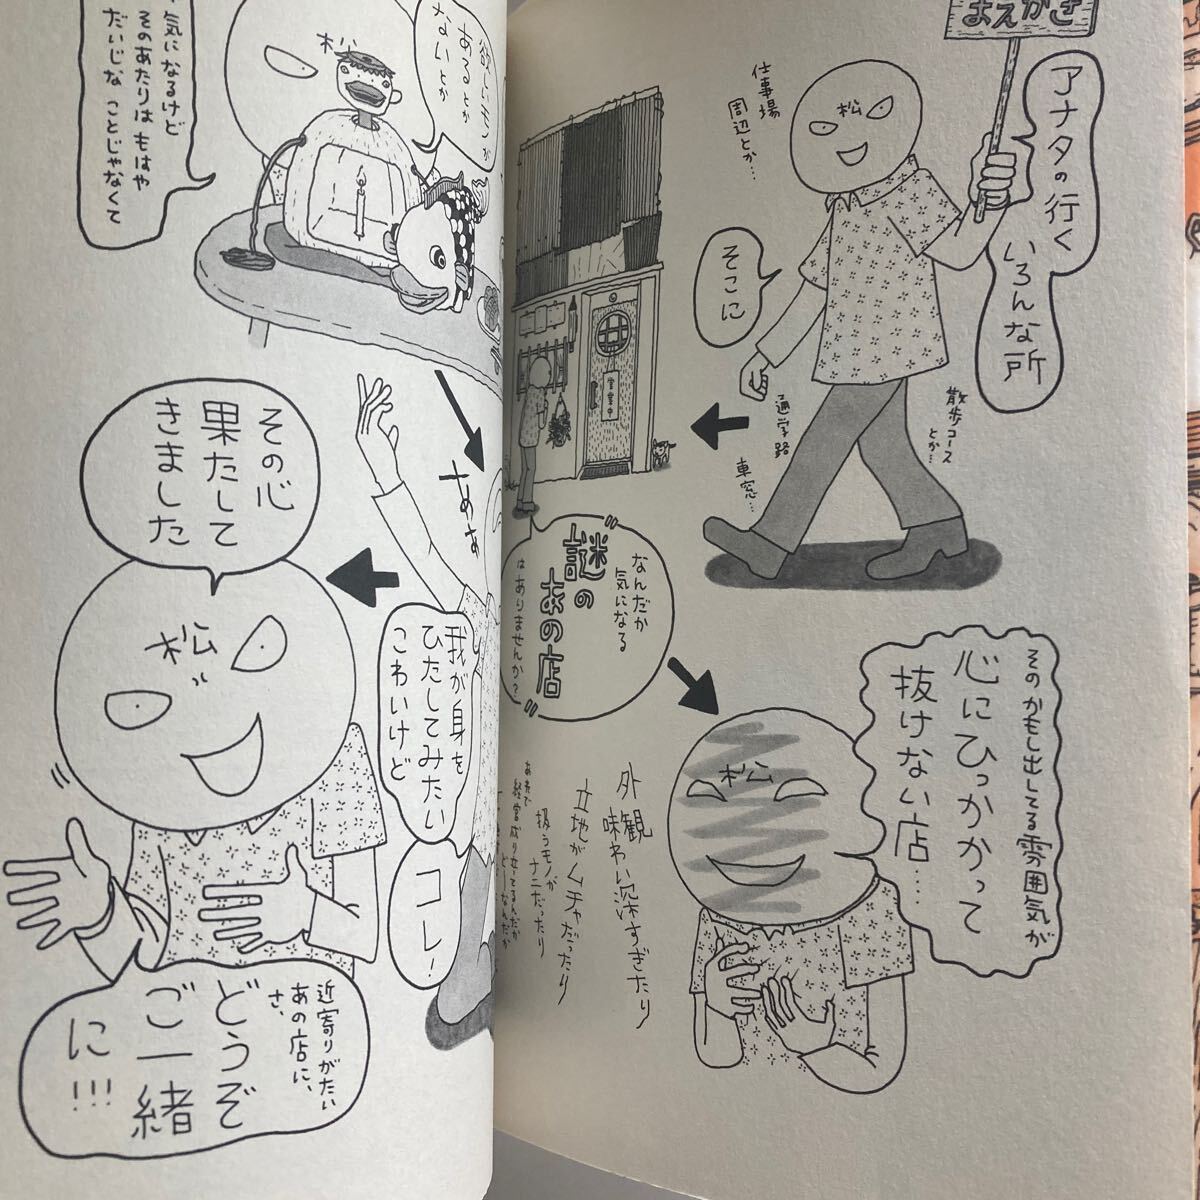 まえがき
アナタの行く
いろんな所
仕事場
周辺とか…
松
そこに
散歩コース
とか…
通学路
車窓…
営業中
なんだか
気になる
謎の
あの店
はありませんか?
そのかもし出してる雰囲気が
心にひっかかって
抜けない店…
松
外観
味わい深すぎたり
立地がムチャだったり
扱うモノが
ナニだったり
あれで
経営成り立ってるんだか
どーなんだか
気になるけど
そのあたりはもはや
だいじな ことじゃなくて
松
欲しいモンが
あるとか
ないとか
あぁ
我が身を
ひたしてみたい
こわいけど
コレ!
その心
果たして
きました
松
近寄りがたい
あの店に、
さ、
どうぞ
ご一緒
に!!!